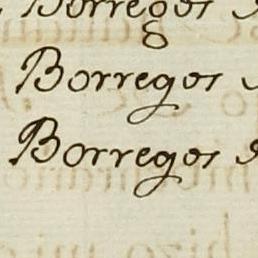 Borregos
Borregos
Borregos